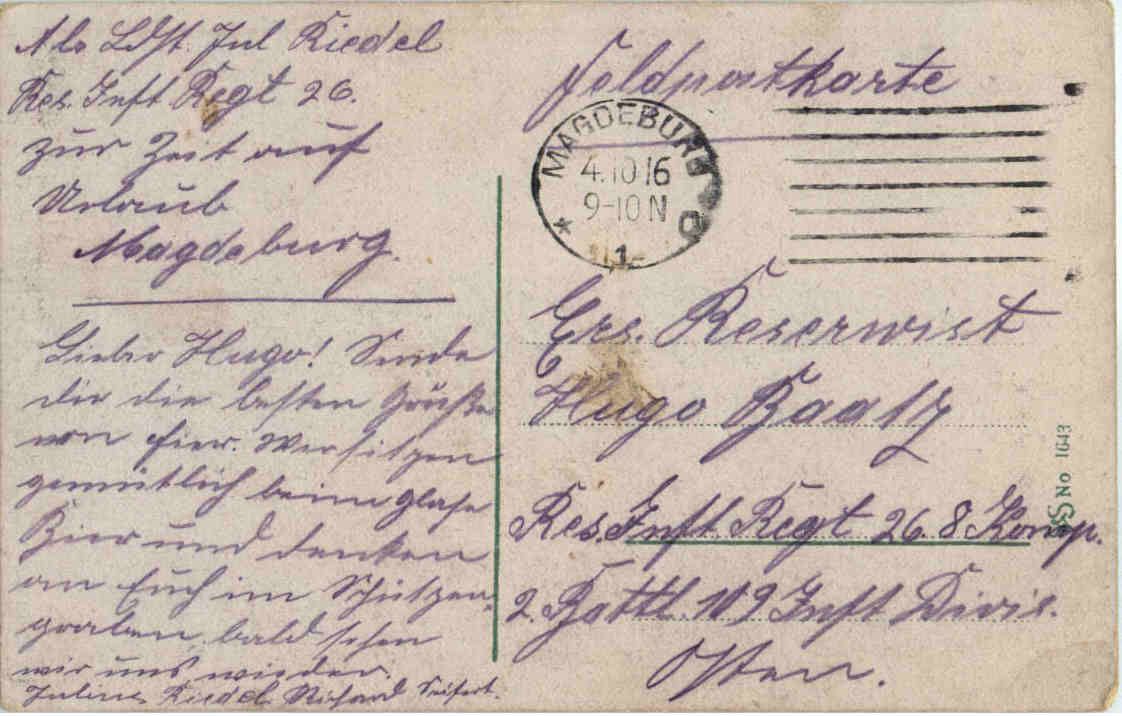 Abs. Ldst. Jul Riedel
Res. Inft Regt 26.
zur Zeit auf
Urlaub
Magdeburg.
Lieber Hugo! Sende
dir die besten Grüße
von hier. Wir sitzen
gemütlich beim Glase
Bier und denken
an Euch im Schützen-
graben, bald sehen
wir uns wieder.
Julius Riedel Richard Seifert.
Feldpostkarte
MAGDEBURG
4.10 16
9-10 N
* 1
Ers. Reserwist
Hugo Baatz
Res. Inft. Regt 26. 8 Komp.
2. Battl. 109 Inft Divis.
Osten.
No 1643